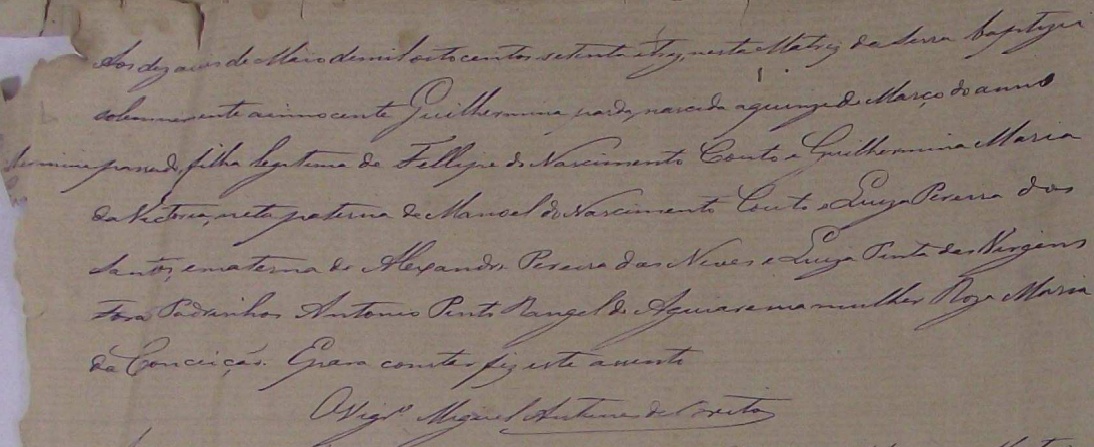 Aos dez do mez de Maio de mil oitocentos setenta e trez, nesta Matriz da Serra baptizei
solemnemente a innocente Guilhermina parda, nascida a quinze de Março do anno
passado, filha legitima de Fellipe do Nascimento Couto e Guilhermina Maria
da Victoria, neta paterna de Manoel do Nascimento Couto e Luiza Pereira dos
Santos, e materna de Alexandre Pereira das Neves e Luiza Pinta das Virgens
Forão Padrinhos Antonio Pinto Rangel de Aguiar e sua mulher Roza Maria
da Conceição. E para constar fiz este assento
O Vigrº Miguel Antunes de Brito